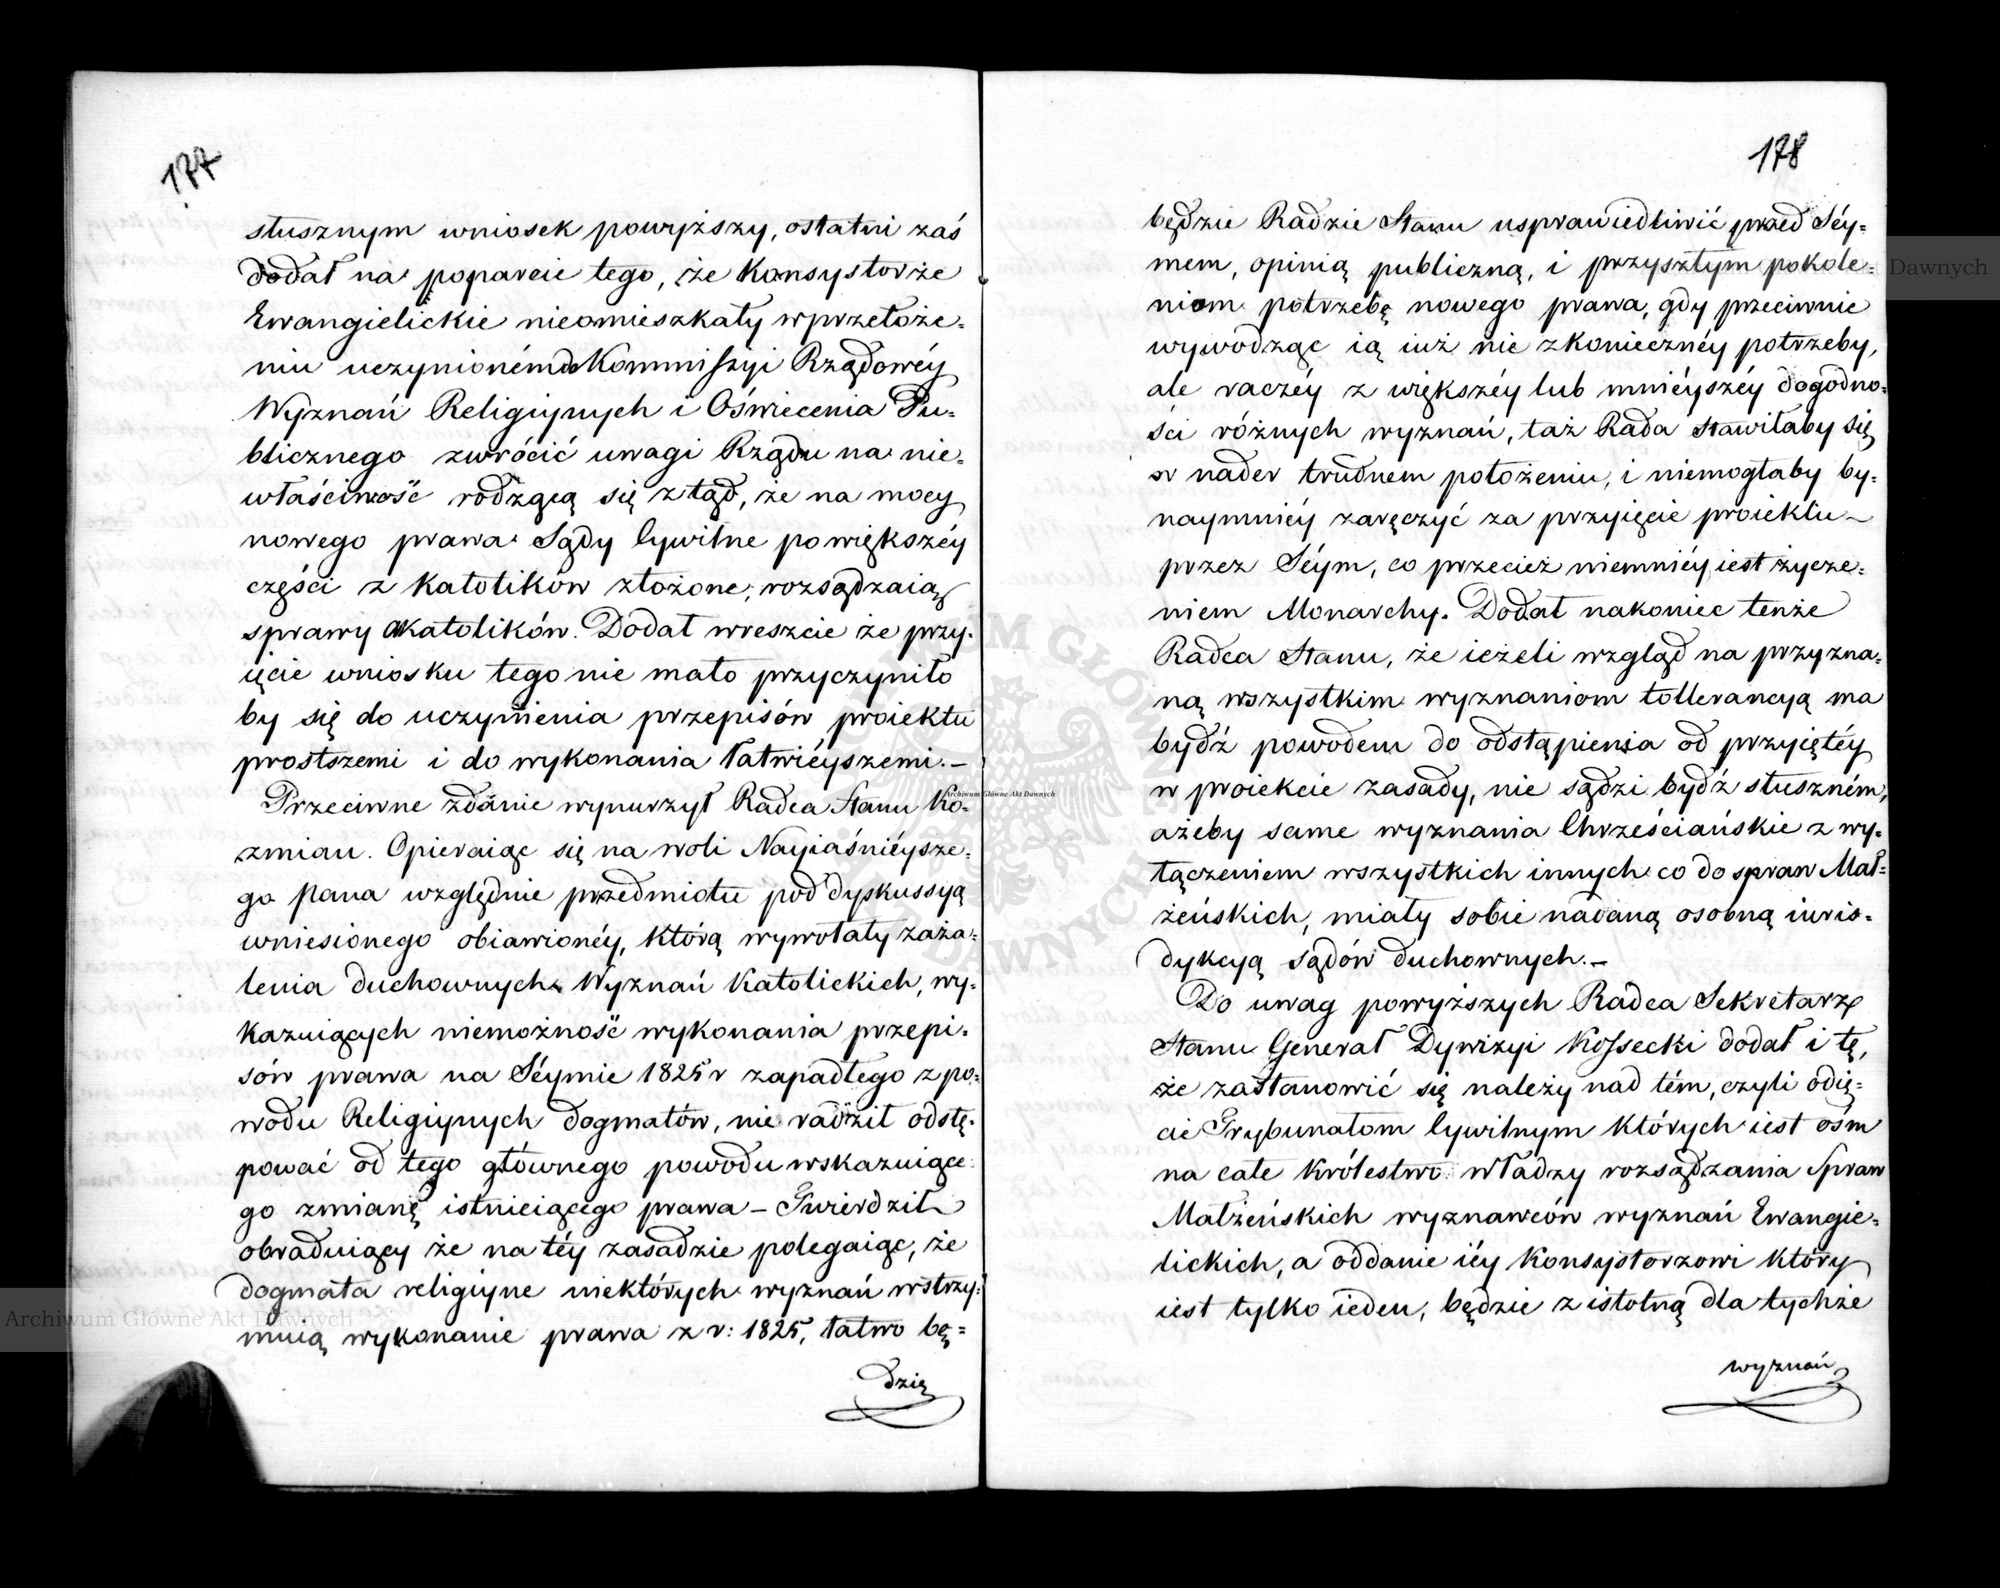 177
słusznym wniosek powyższy, ostatni zaś
dodał na poparcie tego, że Konsystorze
Ewangielickie nieomieszkały w przełoże=
niu uczynioném do Kommissyi Rządowéy
Wyznań Religiynych i Oświecenia Pu=
blicznego zwrócić uwagi Rządu na nie=
właściwość rodzącą się ztąd, że na mocy
nowego prawa Sądy Cywilne powiększéy
części z Katolików złożone, rozsądzaią
sprawy akatolików. Dodał wreszcie że przy=
ięcie wniosku tego nie mało przyczyniło
by się do uczynienia przepisów proiektu
prostszemi i do wykonania łatwiéyszemi.—
Przeciwne zdanie wynurzył Radca Stanu Ko=
zmian. Opieraiąc się na woli Nayiaśniéysze=
go Pana względnie przedmiotu pod dyskussyą
wniesionego obiawionéy, którą wywołały zaża=
lenia duchownych Wyznań Katolickich, wy=
kazuiących niemożność wykonania przepi=
sów prawa na Séymie 1825 r zapadłego z po=
wodu Religiynych dogmatów, nie radził odstę=
pować od tego głównego powodu wskazuiące=
go zmianę istnieiącego prawa — Twierdził
obraduiący że na téy zasadzie polegaiąc, że
dogmata religiyne niektórych wyznań wstrzy=
muią wykonanie prawa z r: 1825, łatwo bę=
dzie
178
będzie Radzie Stanu usprawiedliwić przed Séy=
mem, opinią publiczną, i przyszłym pokole=
niom potrzebę nowego prawa, gdy przeciwnie
wywodząc ią iuż nie z konieczney potrzeby,
ale raczéy z większéy lub mniéyszéy dogodno=
ści różnych wyznań, taż Rada stawiłaby się
w nader trudnem położeniu, i niemogłaby by=
naymniéy zaręczyć za przyięcie proiektu
przez Séym, co przecież niemniéy iest życze=
niem Monarchy. Dodał nakoniec tenże
Radca Stanu, że ieżeli wzgląd na przyzna=
ną wszystkim wyznaniom tollerancyą ma
bydź powodem do odstąpienia od przyiętéy
w proiekcie zasady, nie sądzi bydź słuszném,
ażeby same wyznania Chrześciańskie z wy=
łączeniem wszystkich innych co do spraw Mał=
żeńskich, miały sobie nadaną osobną iuris=
dykcyą sądów duchownych.—
Do uwag powyższych Radca Sekretarz
Stanu Generał Dywizyi Kossecki dodał i tę,
że zastanowić się należy nad tém, czyli odię=
cie Trybunałom Cywilnym których iest ośm
na całe Królestwo władzy rozsądzania Spraw
Małżeńskich wyznawców wyznań Ewangie=
lickich, a oddanie iéy Konsystorzowi który
iest tylko ieden, będzie z istotną dla tychże
wyznań
Archiwum Główne Akt Dawnych